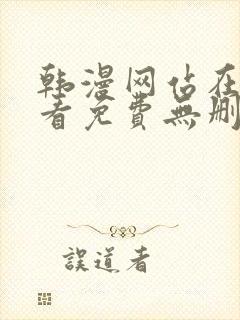 韩漫网站在
看免費無刪
誤道者